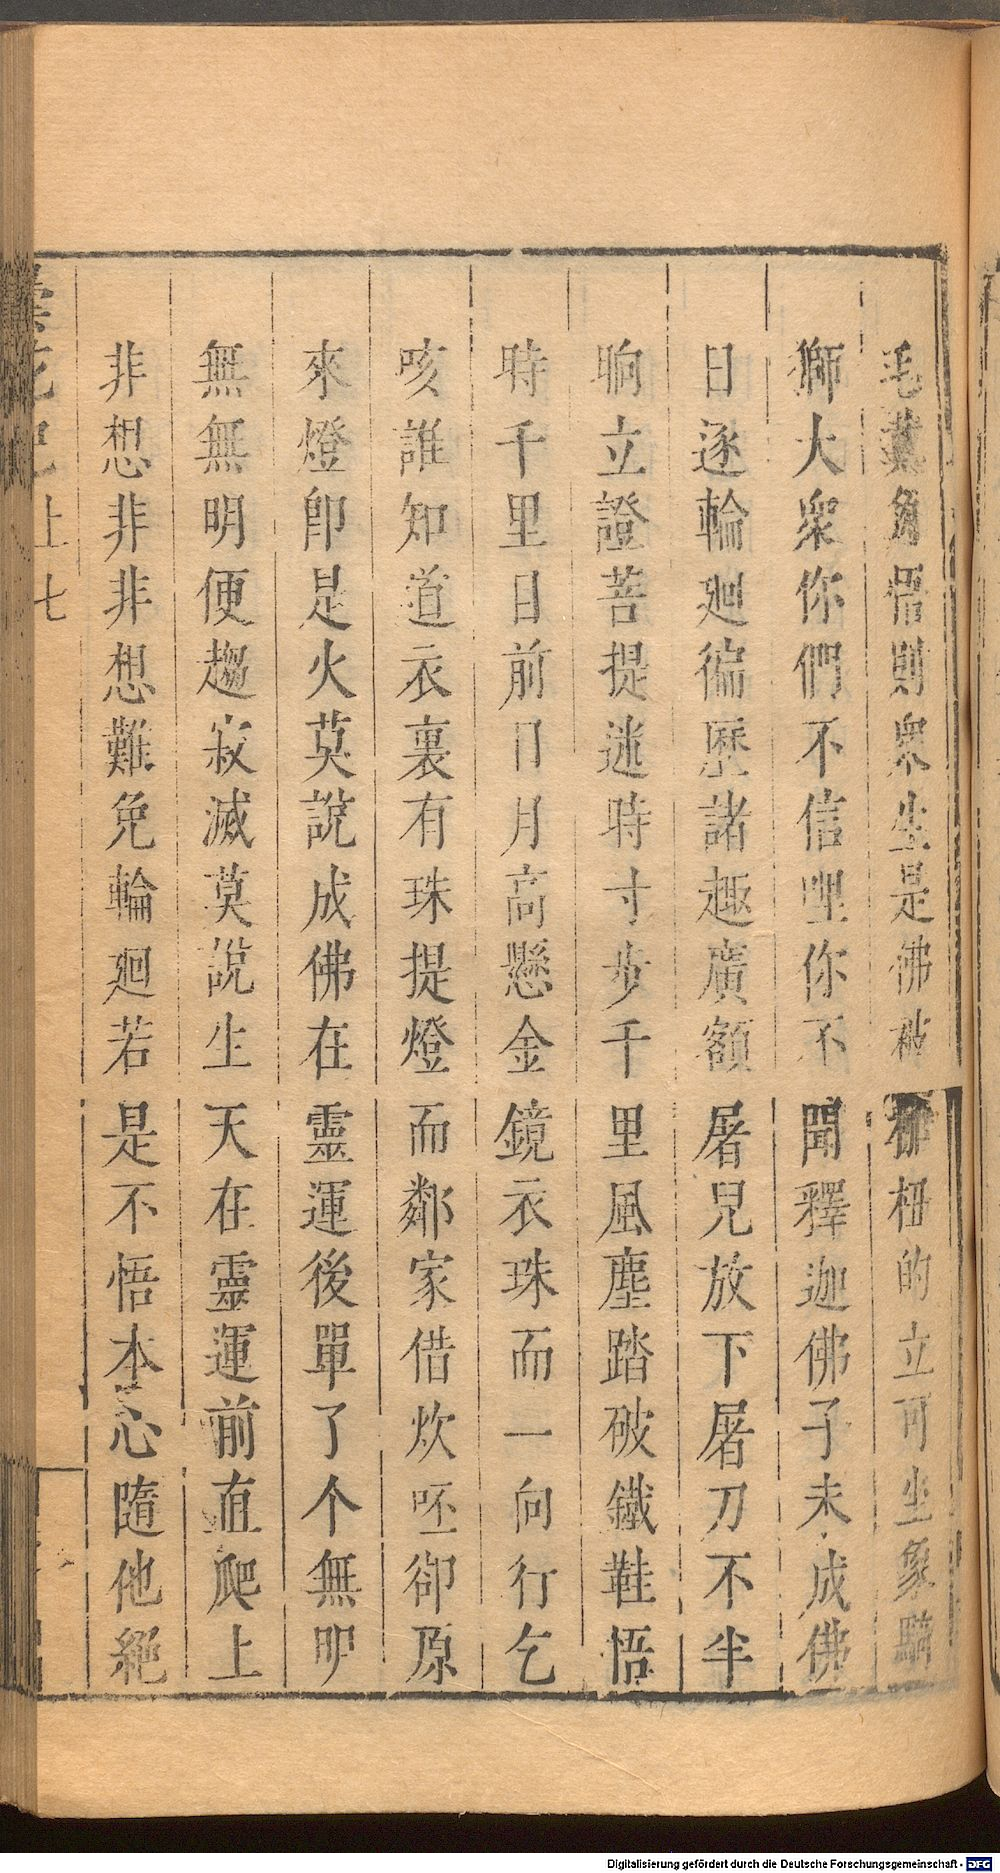 毛戴角悟則衆生是佛被枷杻的立可坐象騎
獅大衆你們不信哩你不聞釋迦佛子未成佛
日逐輪廻徧歷諸趣廣額屠兒放下屠刀不半
晌立證菩提迷時寸步千里風塵踏破鐵鞋悟
時千里目前日月高懸金鏡衣珠而一向行乞
咳誰知道衣裏有珠提燈而鄰家借炊呸卻原
來燈卽是火莫說成佛在靈運後單了个無明
無無明便趨寂滅莫說生天在靈運前直爬上
非想非非想難免輪廻若是不悟本心隨他絕
曇花記 上 七
Digitalisierung gefördert durch die Deutsche Forschungsgemeinschaft - DFG